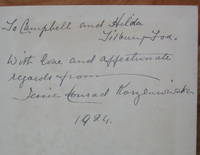 To Campbell and Hilda
Tilbury-Fox.
With love and affectionate
regards from
Jessie Conrad Korzeniowska
1924.